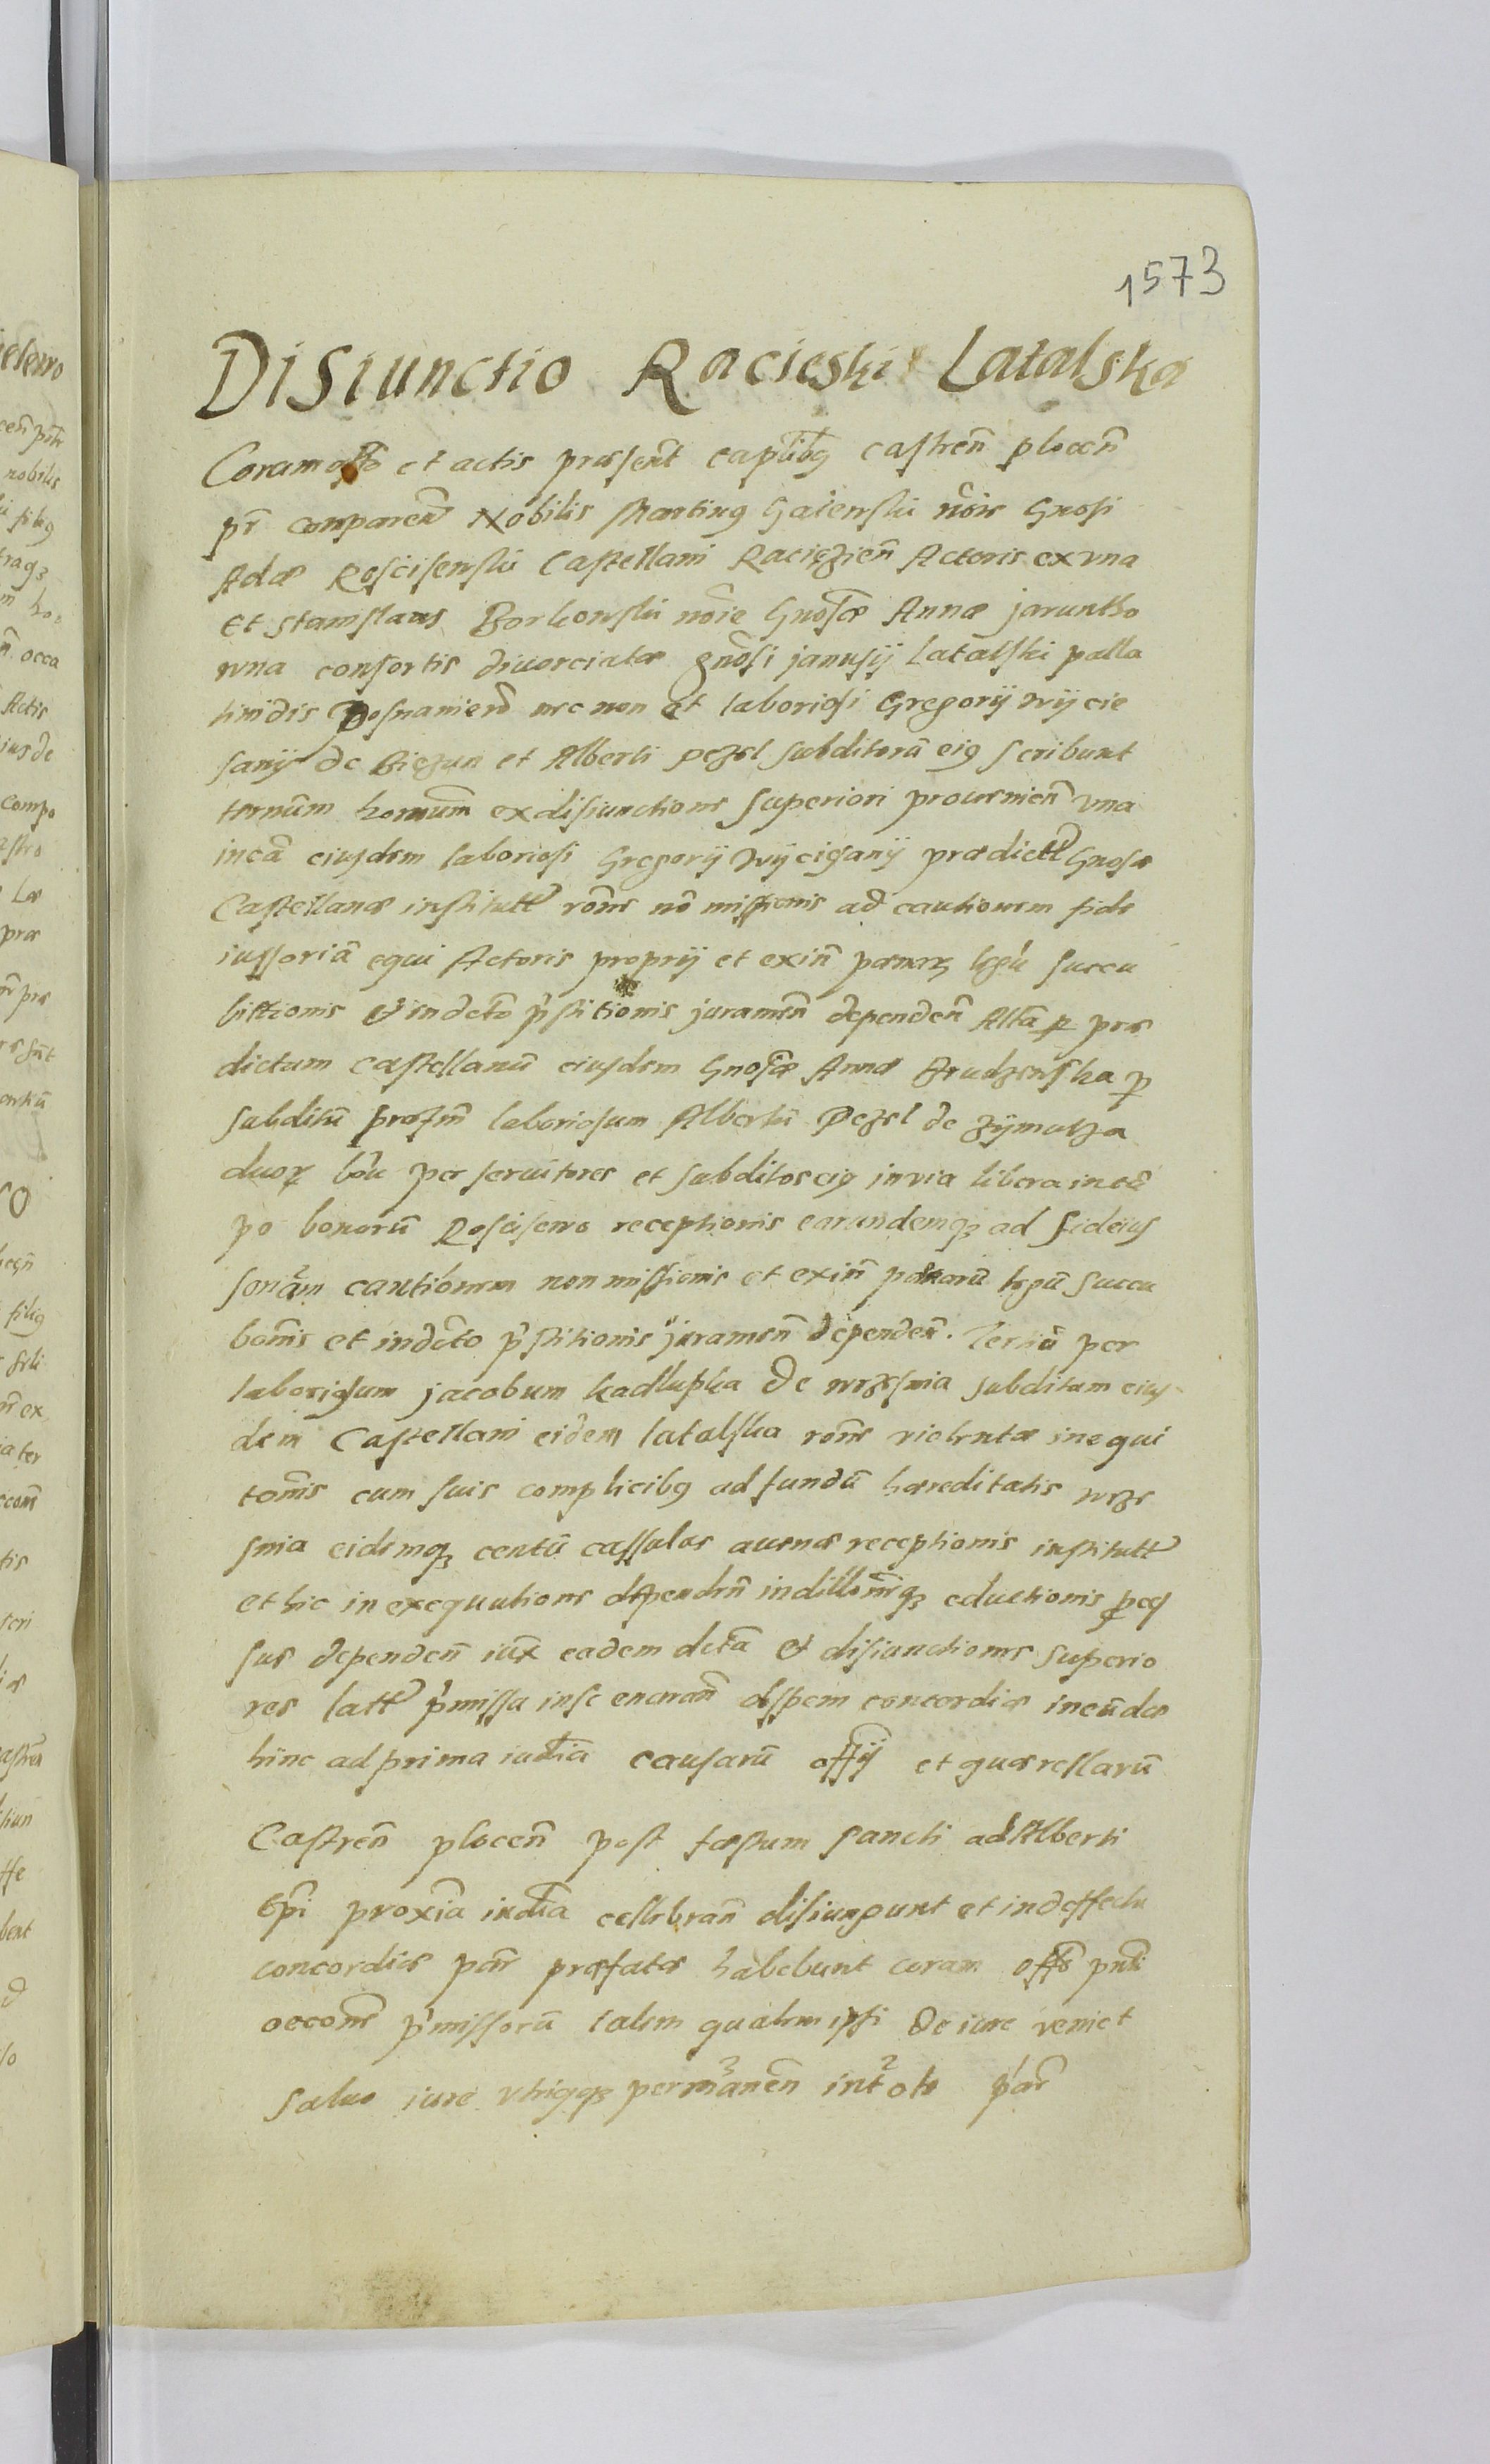 1573
Disiunctio Racieski Latalska
Coram offō et actis præsent̄ capt̄libꝯ castren̄ plocen̄
pr̄ comparen̄ Nobilis Martinꝯ Gaienski nōie Gnosi
Adæ Roscisenski Castellani Raciezien̄ Actoris ex vna
et Stanislaus Borkonski nōie Gnosæ Annæ jaruntho
wna consortis diuorciatæ gnōsi janusij Latalski palla
tinidis Posnanien̄ nec non et laboriosi Gregorij wijcie
sanij de Biezun et Alberti pezel subditorū eiꝯ scribunt
ternūm hominum ex disiunctione superiori prouenien̄ vna
in cā eiusdem laboriosi Gregorij wijcigsanij prædictt Gnosæ
Castellanæ institutt rōne nō missionis ad cautionem fide
iussoriā equi Actoris proprij et exin̄ pœnarꝫ lgū succu
bitionis et in dcto p̄stitionis juramen̄ dependen̄ Altā ꝑ præ
dictum castellanū eiusdem Gnosæ Annæ Brudzenska ꝑ
subditū laboriosum Albertū Pezel de Zijmulza
duorꝫ boū per seruitores et subditos eiꝯ in via libera in cā
po bonorū Roscisewo receptionis earundemqꝫ ad fideius
soriam cautionem non missionis et exin̄ pœnarū lgū succu
bonis et in dcto p̄stitionis juramen̄ dependen̄. Tertiā per
laboriosum jacobum kadlupka de wrzesnia subditum eius
dem Castellani eidem latalska rōne violentæ inequi
tonis cum suis complicibꝯ ad fundū hæreditatis wrze
snia eidemqꝫ centū cassulas auenæ receptionis institutt
et hic in exequutione dependen̄ eductionis
sus dependen̄ iux eadem dctā et disiunctiones superio
res latt p̄missa in se enaran̄ spem concordiæ ineundæ
hinc ad prima iudicia causarū offij et quærellarū
Castren̄ plocen̄ post fæstum sancti adAlberti
Epi proxīa iudicia celebran̄ disiungunt et in deffectu
concordiæ par̄ præfatæ habebunt coram offō pn̄ti
occōne p̄missorū talem qualem ipsi de iure veniet
saluo iure vtriqꝫ permanen̄ in toto par̄